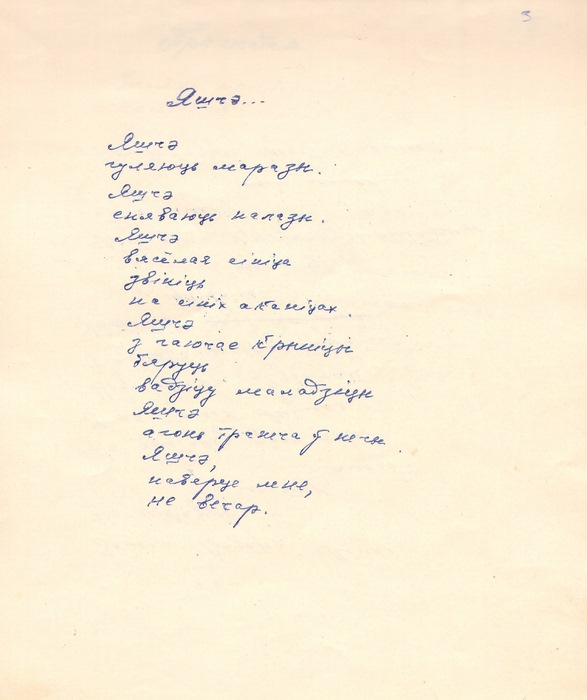 3
Яшчэ...
Яшчэ
гуляюць маразы.
Яшчэ
спяваюць палазы.
Яшчэ
вясёлая сініца
звініць
на сініх аканіцах.
Яшчэ
з гаючае крыніцы
бяруць
вадзіцу маладзіцы
Яшчэ
агонь трашча ў печы.
Яшчэ,
паверце мне,
не вечар.